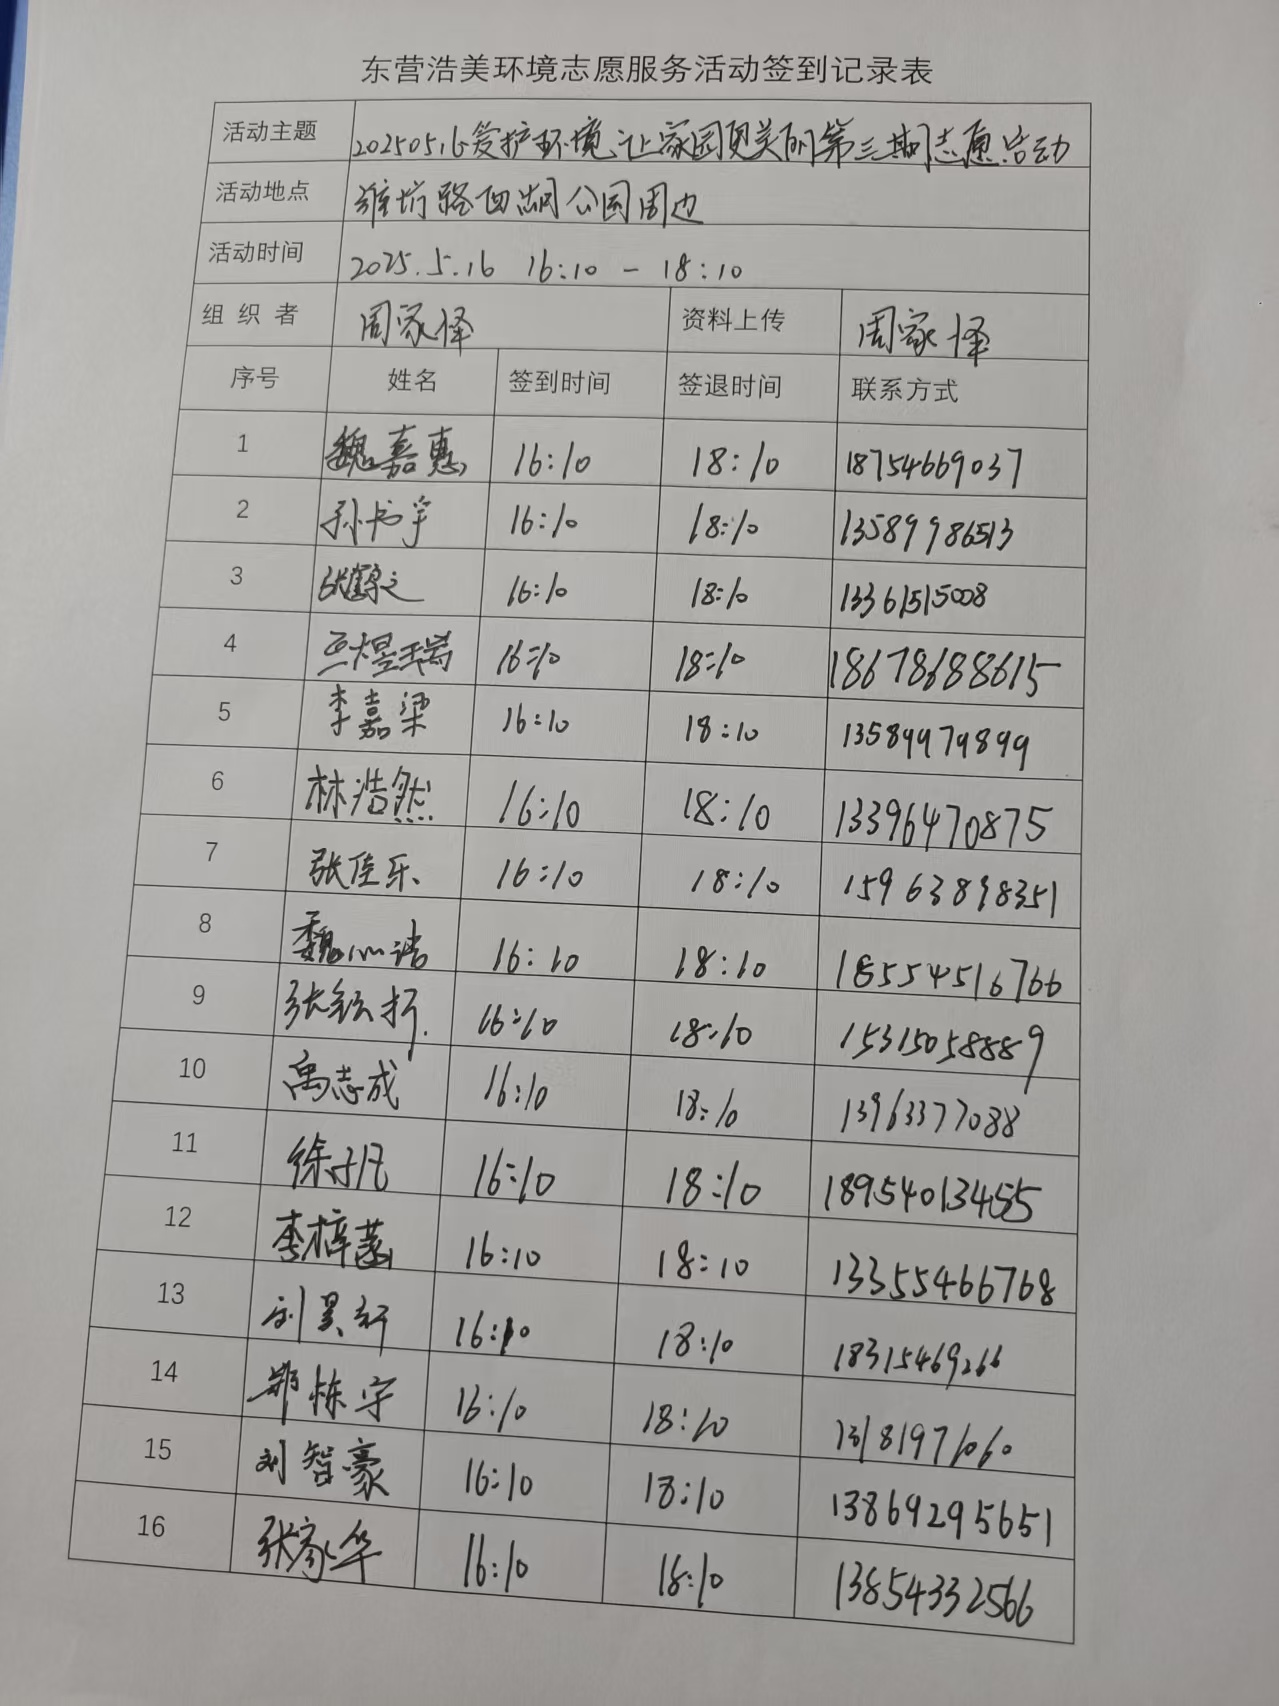 东营浩美环境志愿服务活动签到记录表
活动主题 20250516爱护环境,让家园更美丽第三期志愿活动
活动地点 潍坊路西湖公园周边
活动时间 2025.5.16 16:10 - 18:10
组织者 周家怿 资料上传 周家怿
序号 姓名 签到时间 签退时间 联系方式
1 魏嘉惠 16:10 18:10 18754669037
2 孙书宇 16:10 18:10 13589986513
3 张 之 16:10 18:10 13361515008
4 王煜瑞 16:10 18:10 18678688615
5 李嘉梁 16:10 18:10 13589979899
6 林浩然 16:10 18:10 13396470875
7 张佳乐 16:10 18:10 15963898351
8 魏心诺 16:10 18:10 18554516766
9 张 16:10 18:10 15315058889
10 禹志成 16:10 18:10 13963377088
11 徐子凡 16:10 18:10
12 李梓菡 16:10 18:10 13355466768
13 刘昊轩 16:10 18:10 18315469266
14 郑栋宇 16:10 18:10
15 刘智豪 16:10 18:10 13869295651
16 张家华 16:10 18:10 13854332566